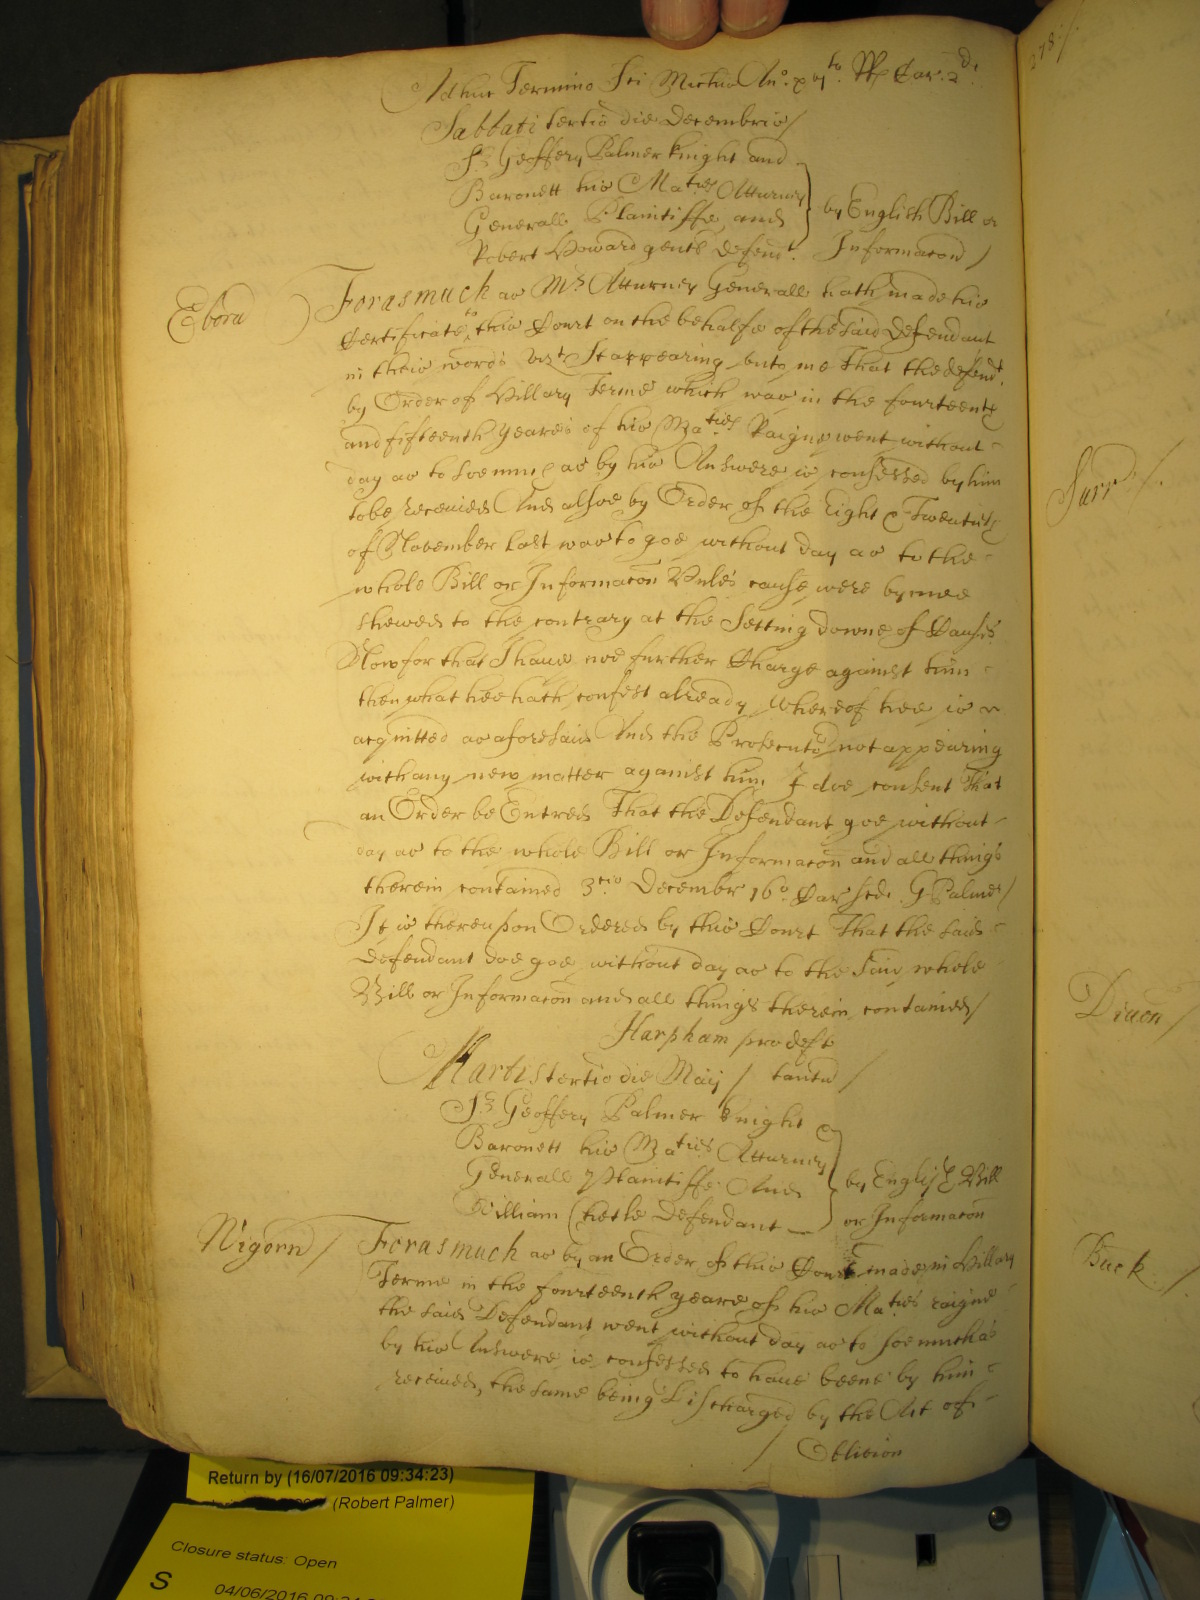 Adhuc Termino Sci Micħis An.o xvj.to RR Car. 2.di
Sabbati tertio die Decembris /
Sr. Geoffery Palmer Knight and
Baronett his Ma.ties Atturney
Generall Plaintiffe and
Robert Howard gent Defend.t
by English Bill or
Informacon /
Ebora
Forasmuch as Mr. Atturney Generall hath made his
Certificate to this Court on the behalfe of the said Defendant
in theis words viz.t It appearing unto me That the defend.t
by Order of Hillary Terme which was in the fourteenth
and fifteenth yeares of his Ma.ties Raigne went without
day as to soe much as by his Answere is confessed by him
to be received And alsoe by Order of the Eight & Twentieth
of November last was to goe without day as to the
whole Bill or Informacon Unles cause were by mee
shewed to the contrary at the Setting downe of Causes
Now for that I have noe further Charge against him
then what hee hath confest already whereof hee is
acquitted as aforesaid And the Prosecuto.r not appearing
with any new matter against him I doe consent That
an Order be Entred That the Defendant goe without
day as to the whole Bill or Informacon and all things
therein contained 3.tio December 16.o Car scdi G Palmer /
It is thereupon Ordered by this Court That the said
Defendant doe goe without day as to the said whole
Bill or Informacon and all things therein contained /
Harpham pro deft
Martis tertio die Maij / tantu /
Sr. Geoffery Palmer Knight
Baronett his Ma.ties Atturney
Generall Plaintiffe And
William Defendant
by English Bill
or Informacon
Wigorn /
Forasmuch as by an Order of this Court made in Hillary
Terme in the fourteenth yeare of his Ma.ties raigne
the said Defendant went without day as to soe much as
by his Answere is confessed to have beene by him
received, the same being Discharged by the Act of
/ Oblivion
278 /
Surr /
Devon /
Buck /
Return by (16/07/2016 09:34:23)
(Robert Palmer)
Closure status: Open
S
04/06/2016